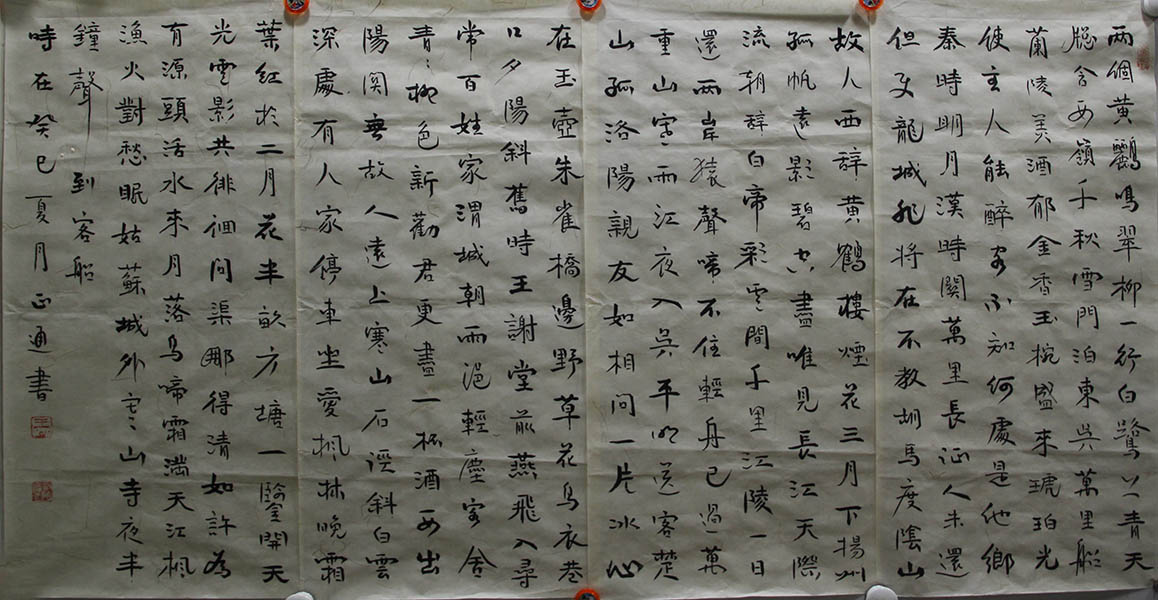 两個黄鸝鳴翠柳一行白鷺上青天
牕含西嶺千秋雪門泊東吳萬里船
蘭陵美酒郁金香玉椀盛來琥珀光
使主人能醉客不知何處是他鄉
秦時明月漢時關萬里長征人未還
但使龍城飛將在不教胡馬度陰山
故人西辭黄鶴樓煙花三月下揚州
孤帆遠影碧空盡唯見長江天際
流朝辭白帝彩雲間千里江陵一日
還两岸猿聲啼不住輕舟已過萬
重山寒雨江夜入吳平明送客楚
山孤洛陽親友如相問一片冰心
在玉壺朱雀橋邊野草花烏衣巷
口夕陽斜舊時王謝堂前燕飛入尋
常百姓家渭城朝雨浥輕塵客舍
青〻柳色新勸君更盡一杯酒西出
陽関無故人遠上寒山石徑斜白雲
深處有人家停車坐愛楓林晚霜
葉紅於二月花半畝方塘一鑑開天
光雲影共徘徊問渠哪得清如許為
有源頭活水來月落烏啼霜满天江楓
漁火對愁眠姑蘇城外寒山寺夜半
鐘聲到客船
時在癸巳夏月正通書